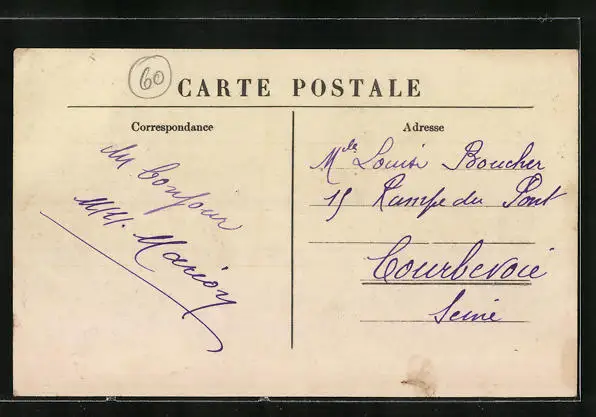 60
CARTE POSTALE
Correspondance
un bonjour
Marion
Adresse
Mlle Louise Boucher
15 Rampe du Pont
Courbevoie
Seine